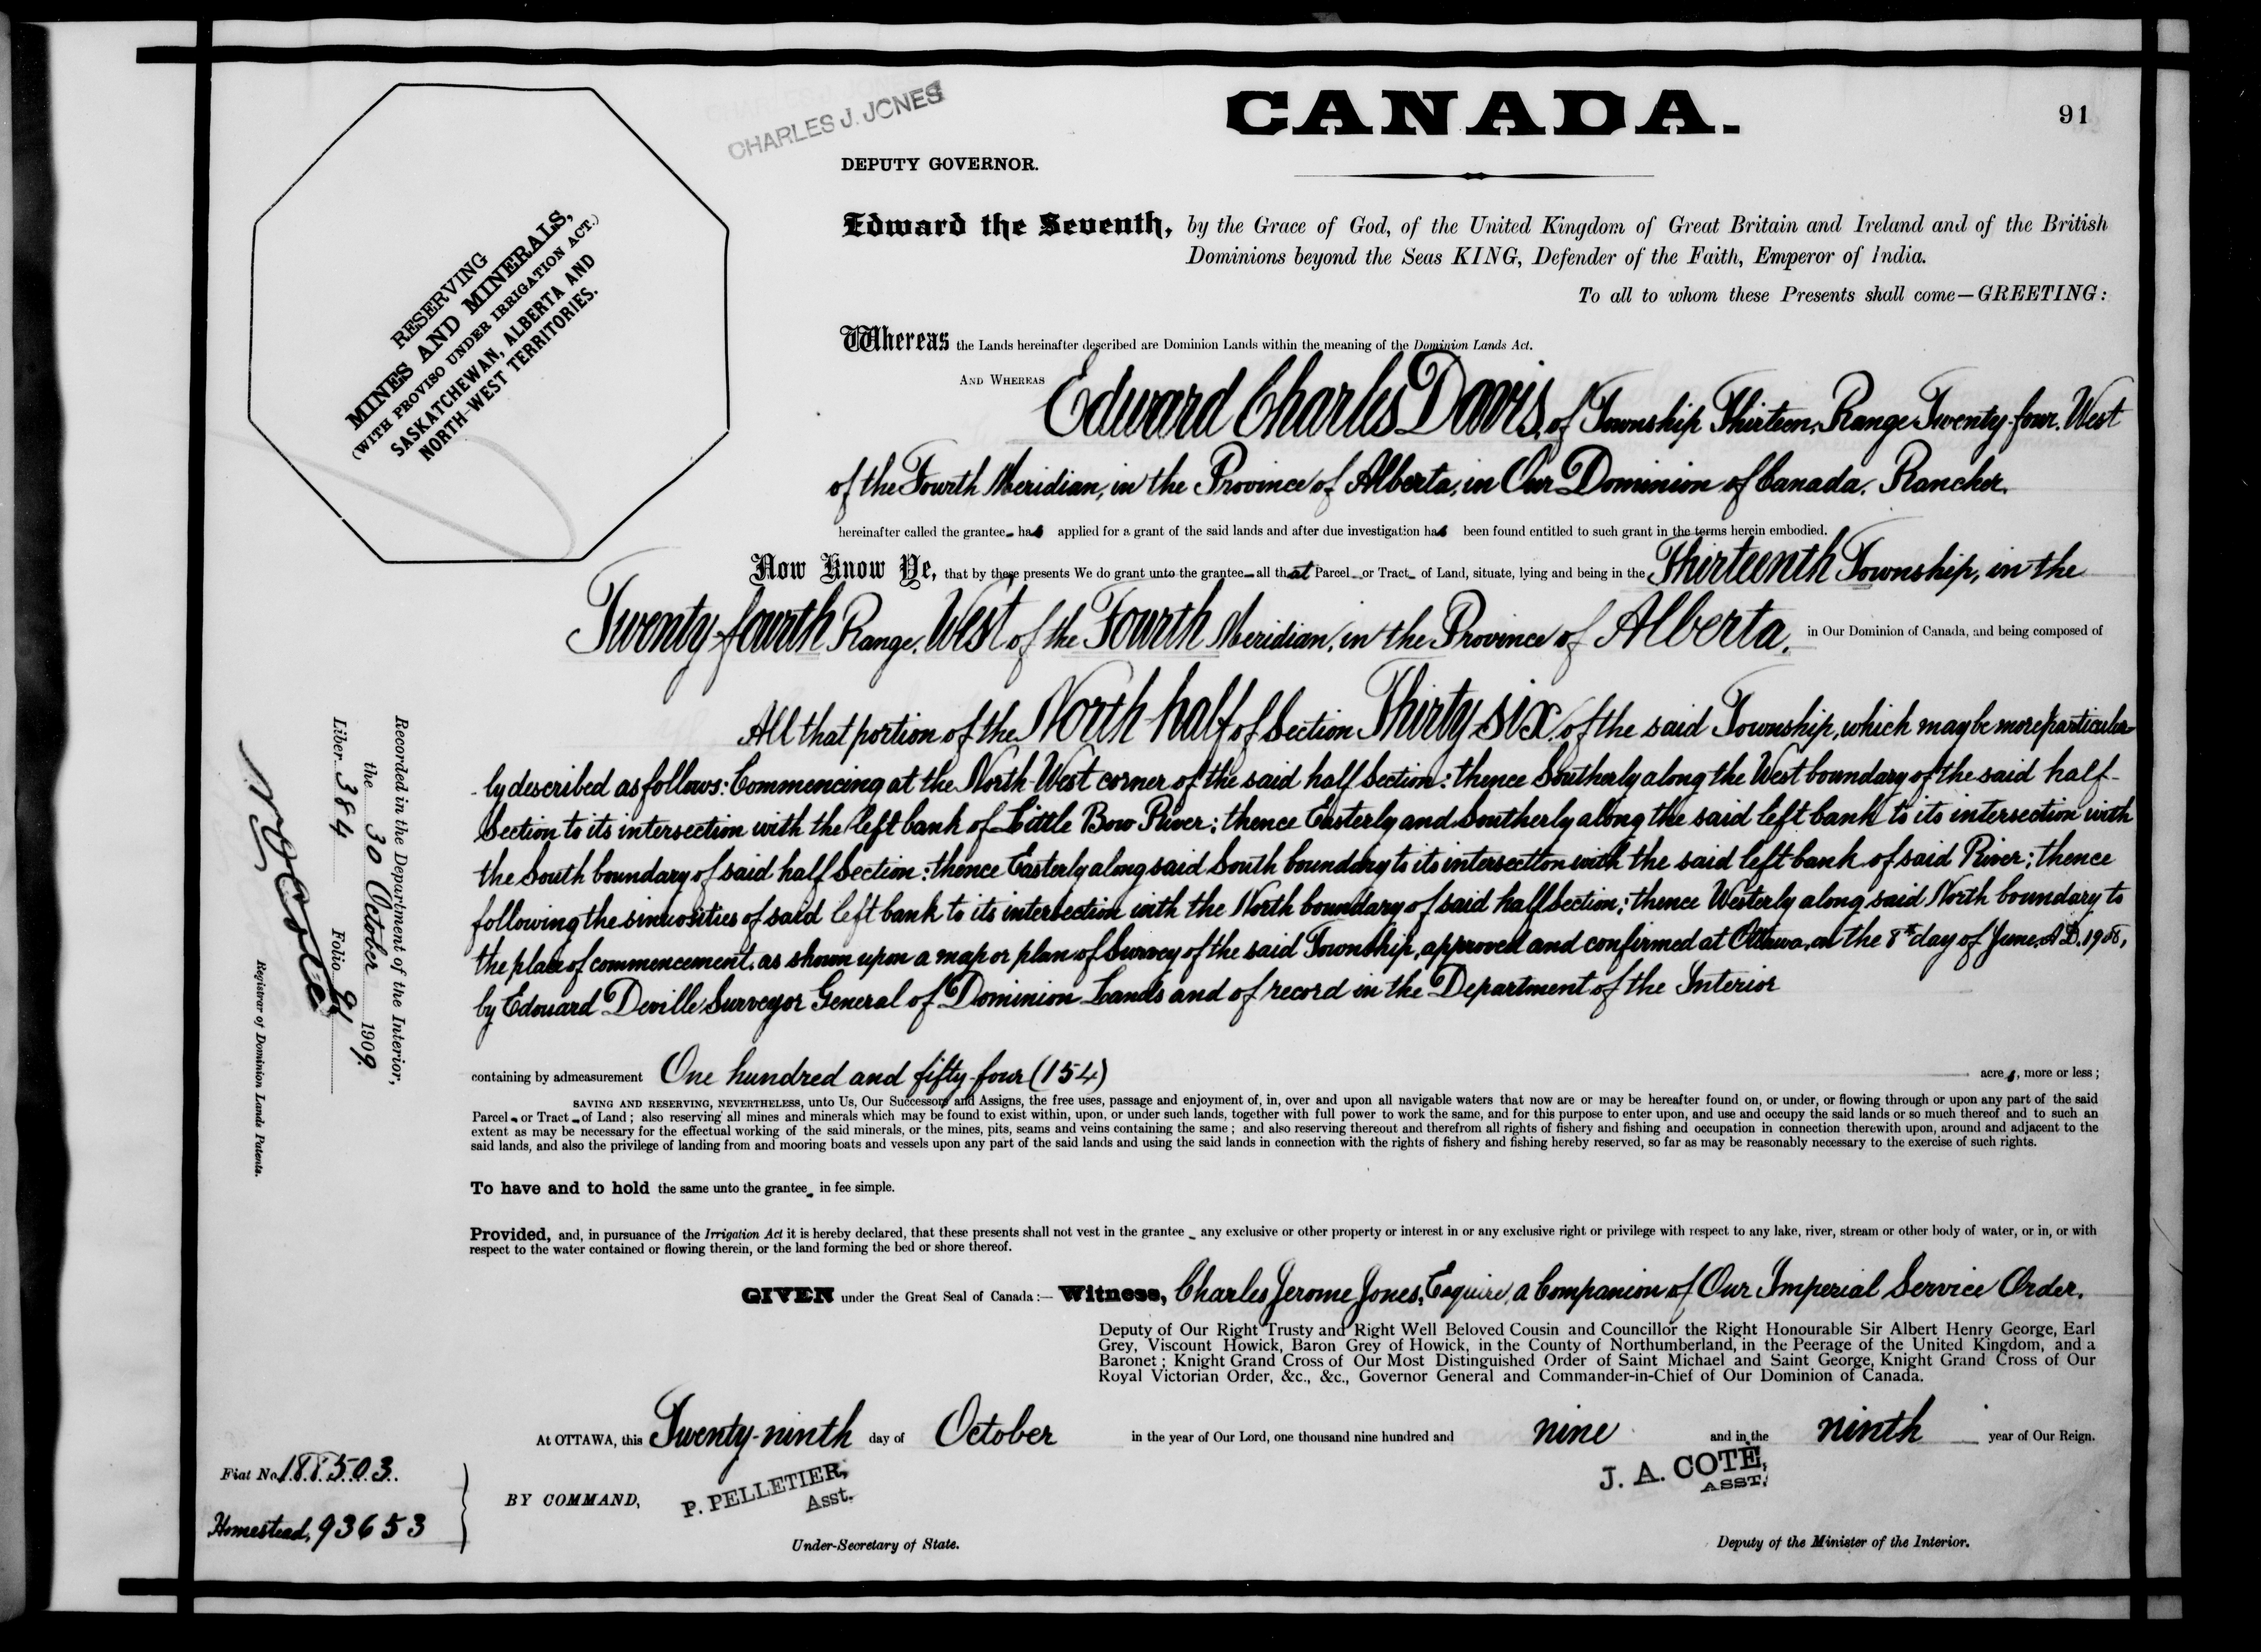 CANADA.
91
CHARLES J. JONES
DEPUTY GOVERNOR.
RESERVING
MINES AND MINERALS,
(WITH PROVISO UNDER IRRIGATION ACT.)
SASKATCHEWAN, ALBERTA AND
NORTH-WEST TERRITORIES.
Edward the Seventh, by the Grace of God, of the United Kingdom of Great Britain and Ireland and of the British
Dominions beyond the Seas KING, Defender of the Faith, Emperor of India.
To all to whom these Presents shall come—GREETING:
Whereas the Lands hereinafter described are Dominion Lands within the meaning of the Dominion Lands Act.
AND WHEREAS Edward Charles Davis, of Township Thirteen, Range Twenty-four, West
of the Fourth Meridian, in the Province of Alberta, in Our Dominion of Canada, Rancher,
hereinafter called the grantee_ has applied for a grant of the said lands and after due investigation has been found entitled to such grant in the terms herein embodied.
Now Know Ye, that by these presents We do grant unto the grantee_ all that Parcel_ or Tract_ of Land, situate, lying and being in the Thirteenth Township, in the
Twenty-fourth Range, West of the Fourth Meridian, in the Province of Alberta, in Our Dominion of Canada, and being composed of
All that portion of the North half of Section Thirty-six, of the said Township, which may be more particular-
-ly described as follows: Commencing at the North-West corner of the said half Section: thence Southerly along the West boundary of the said half-
Section to its intersection with the left bank of Little Bow River; thence Easterly and Southerly along the said left bank to its intersection with
the South boundary of said half Section: thence Easterly along said South boundary to its intersection with the said left bank of said River; thence
following the sinuosities of said left bank to its intersection with the North boundary of said half Section; thence Westerly along said North boundary to
the place of commencement, as shown upon a map or plan of Survey of the said Township, approved and confirmed at Ottawa, on the 8th day of June, A.D. 1908,
by Edouard Deville Surveyor General of Dominion Lands and of record in the Department of the Interior
containing by admeasurement One hundred and fifty-four (154) acres, more or less;
SAVING AND RESERVING, NEVERTHELESS, unto Us, Our Successors and Assigns, the free uses, passage and enjoyment of, in, over and upon all navigable waters that now are or may be hereafter found on, or under, or flowing through or upon any part of the said
Parcel_ or Tract_ of Land; also reserving all mines and minerals which may be found to exist within, upon, or under such lands, together with full power to work the same, and for this purpose to enter upon, and use and occupy the said lands or so much thereof and to such an
extent as may be necessary for the effectual working of the said minerals, or the mines, pits, seams and veins containing the same; and also reserving thereout and therefrom all rights of fishery and fishing and occupation in connection therewith upon, around and adjacent to the
said lands, and also the privilege of landing from and mooring boats and vessels upon any part of the said lands and using the said lands in connection with the rights of fishery and fishing hereby reserved, so far as may be reasonably necessary to the exercise of such rights.
To have and to hold the same unto the grantee_ in fee simple.
Provided, and, in pursuance of the Irrigation Act it is hereby declared, that these presents shall not vest in the grantee_ any exclusive or other property or interest in or any exclusive right or privilege with respect to any lake, river, stream or other body of water, or in, or with
respect to the water contained or flowing therein, or the land forming the bed or shore thereof.
GIVEN under the Great Seal of Canada:— Witness, Charles Jerome Jones, Esquire, a Companion of Our Imperial Service Order,
Deputy of Our Right Trusty and Right Well Beloved Cousin and Councillor the Right Honourable Sir Albert Henry George, Earl
Grey, Viscount Howick, Baron Grey of Howick, in the County of Northumberland, in the Peerage of the United Kingdom, and a
Baronet; Knight Grand Cross of Our Most Distinguished Order of Saint Michael and Saint George, Knight Grand Cross of Our
Royal Victorian Order, &c., &c., Governor General and Commander-in-Chief of Our Dominion of Canada.
At OTTAWA, this Twenty-ninth day of October in the year of Our Lord, one thousand nine hundred and nine and in the ninth year of Our Reign.
BY COMMAND,
P. PELLETIER,
Asst.
Under-Secretary of State.
J. A. COTE,
ASST.
Deputy of the Minister of the Interior.
Fiat No. 188503.
Homestead, 93653
Recorded in the Department of the Interior,
the 30 October 1909.
Liber 384 Folio 91
Registrar of Dominion Lands Patents.